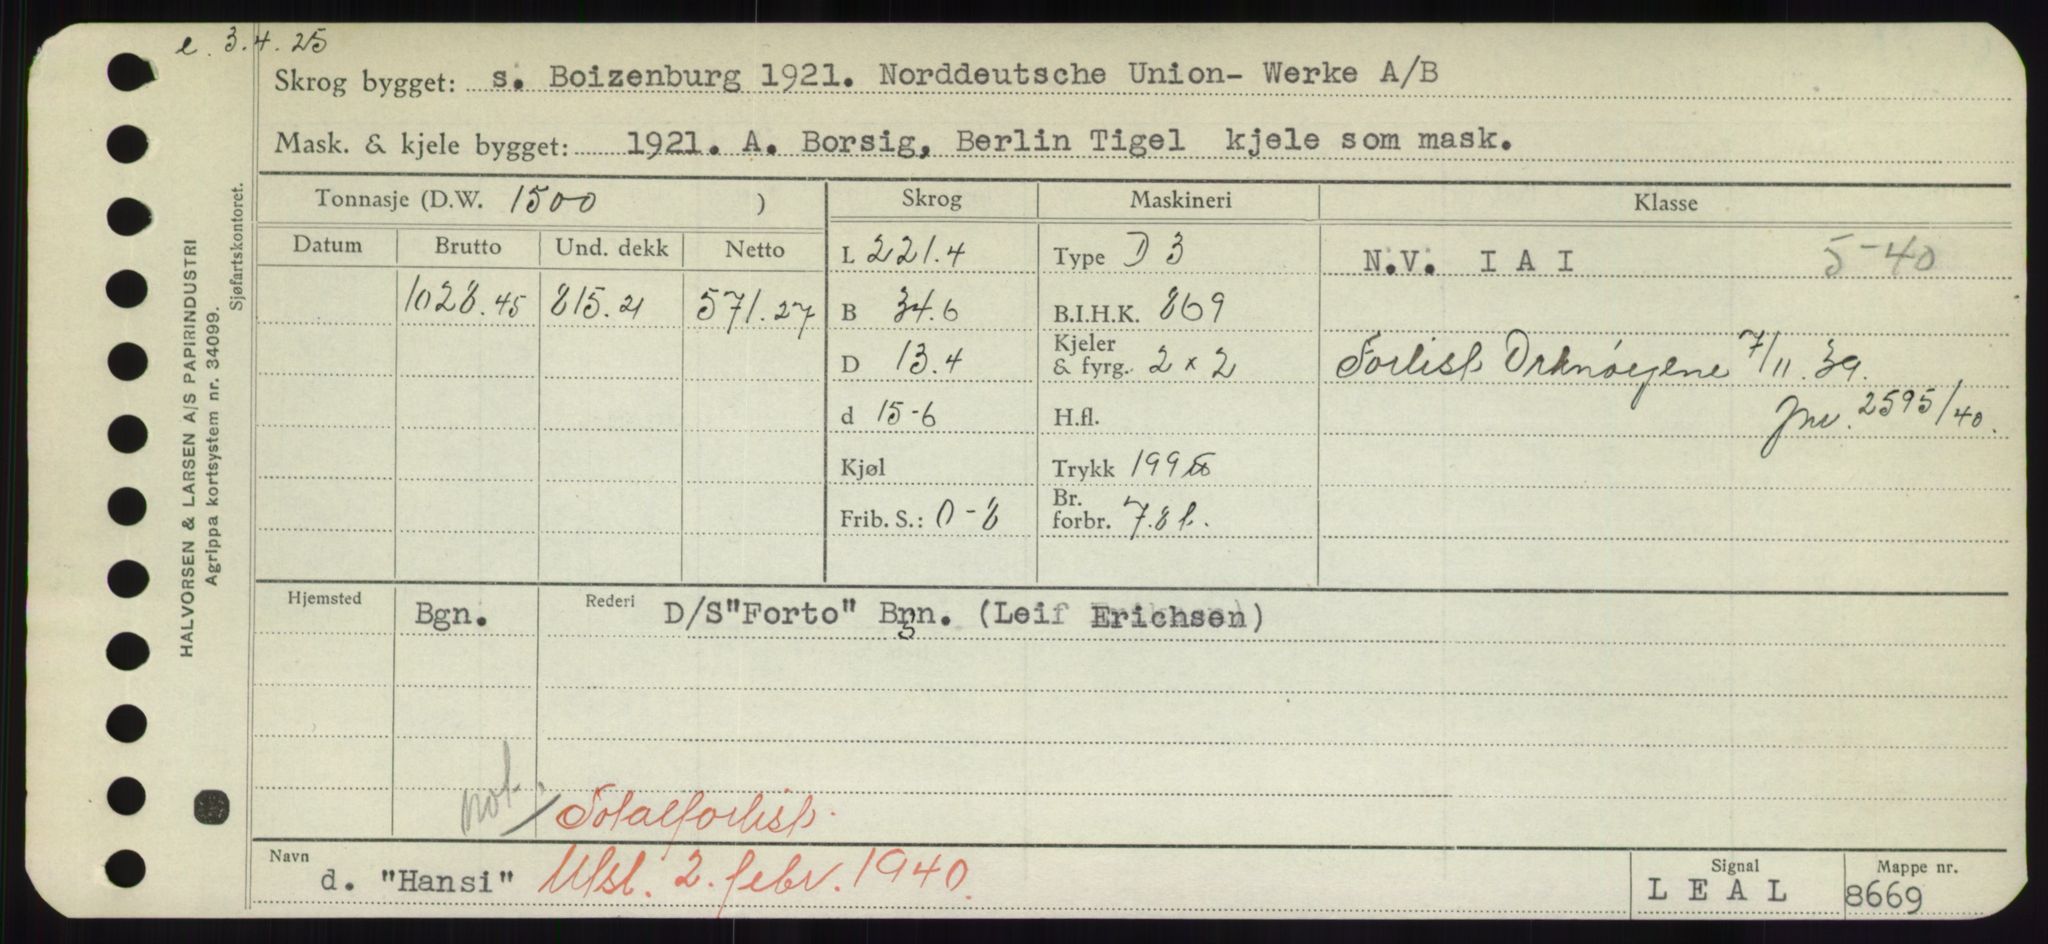 e. 3.4.25
Skrog bygget: s. Boizenburg 1921. Norddeutsche Union- Werke A/B
Mask. & kjele bygget: 1921. A. Borsig, Berlin Tigel kjele som mask.
Tonnasje (D.W. 1500 ) Skrog Maskineri Klasse
Datum Brutto Und. dekk Netto L 221.4 Type D 3 N.V. I A I 5-40
1028.45 815.21 571.27 B 34.6 B.I.H.K. 869
D 13.4 Kjeler & fyrg. 2 x 2 Forlist Orknøyene 7/11.39.
d 15-6 H.fl. Jnv. 2595/40.
Kjøl Trykk 199
Frib. S.: 0-8 Br. forbr. 7.8 t.
Hjemsted Bgn. Rederi D/S"Forto" Bgn. (Leif Erichsen)
not. Totalforlist.
Navn d. "Hansi" Utsl. 2. febr. 1940. Signal L E A L Mappe nr. 8669
HALVORSEN & LARSEN A/S PAPIRINDUSTRI
Agrippa kortsystem nr. 34099.
Sjøfartskontoret.